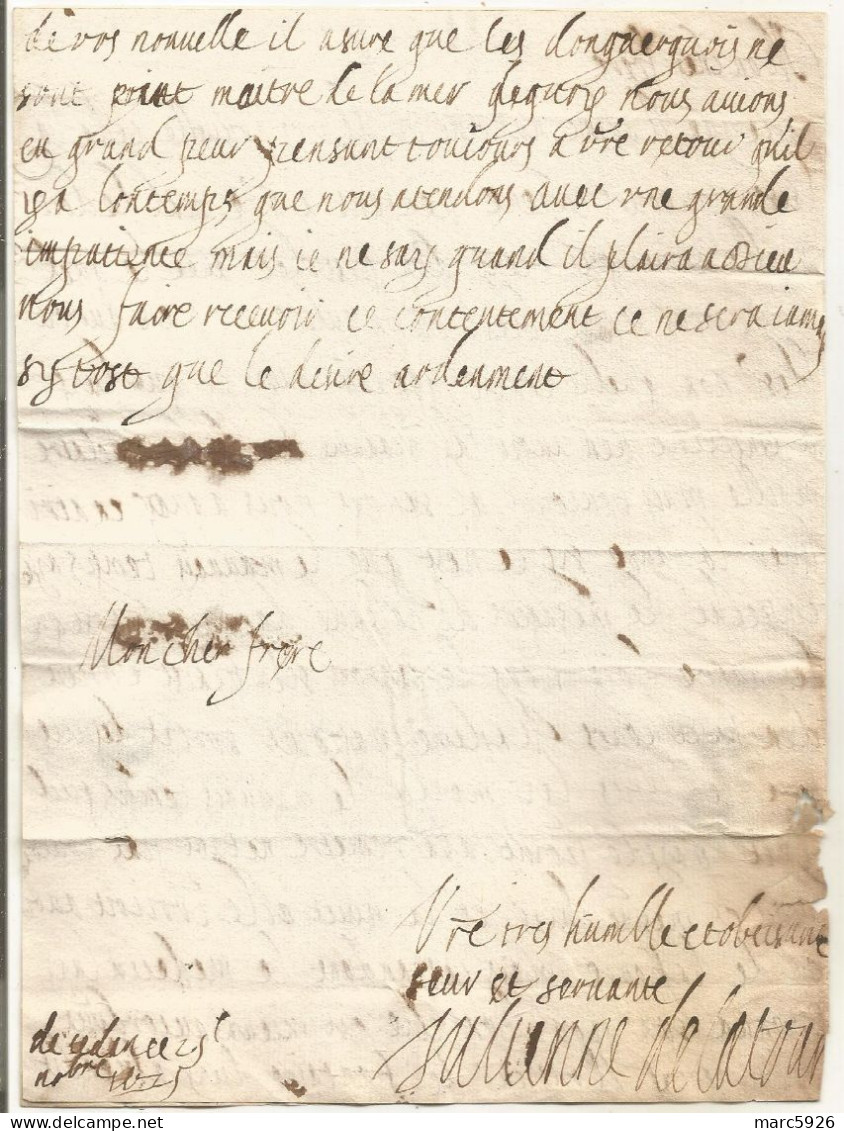 de vos nouvelle il asure que les donquerquois ne
sont point maitre de la mer dequoy nous avions
eu grand peur pensant tousiours a vre retour quil
iya lontemps que nous atendons avec vne grande
impatience mais ie ne says quand il plaira a dieu
nous faire recevoir ce contentement ce ne sera iamais
sy tost que le desire ardenment
Mon cher frere
Vre tres humble et obeisante
seur et servante
de la tour
de 25
nobre 1625
marc5926